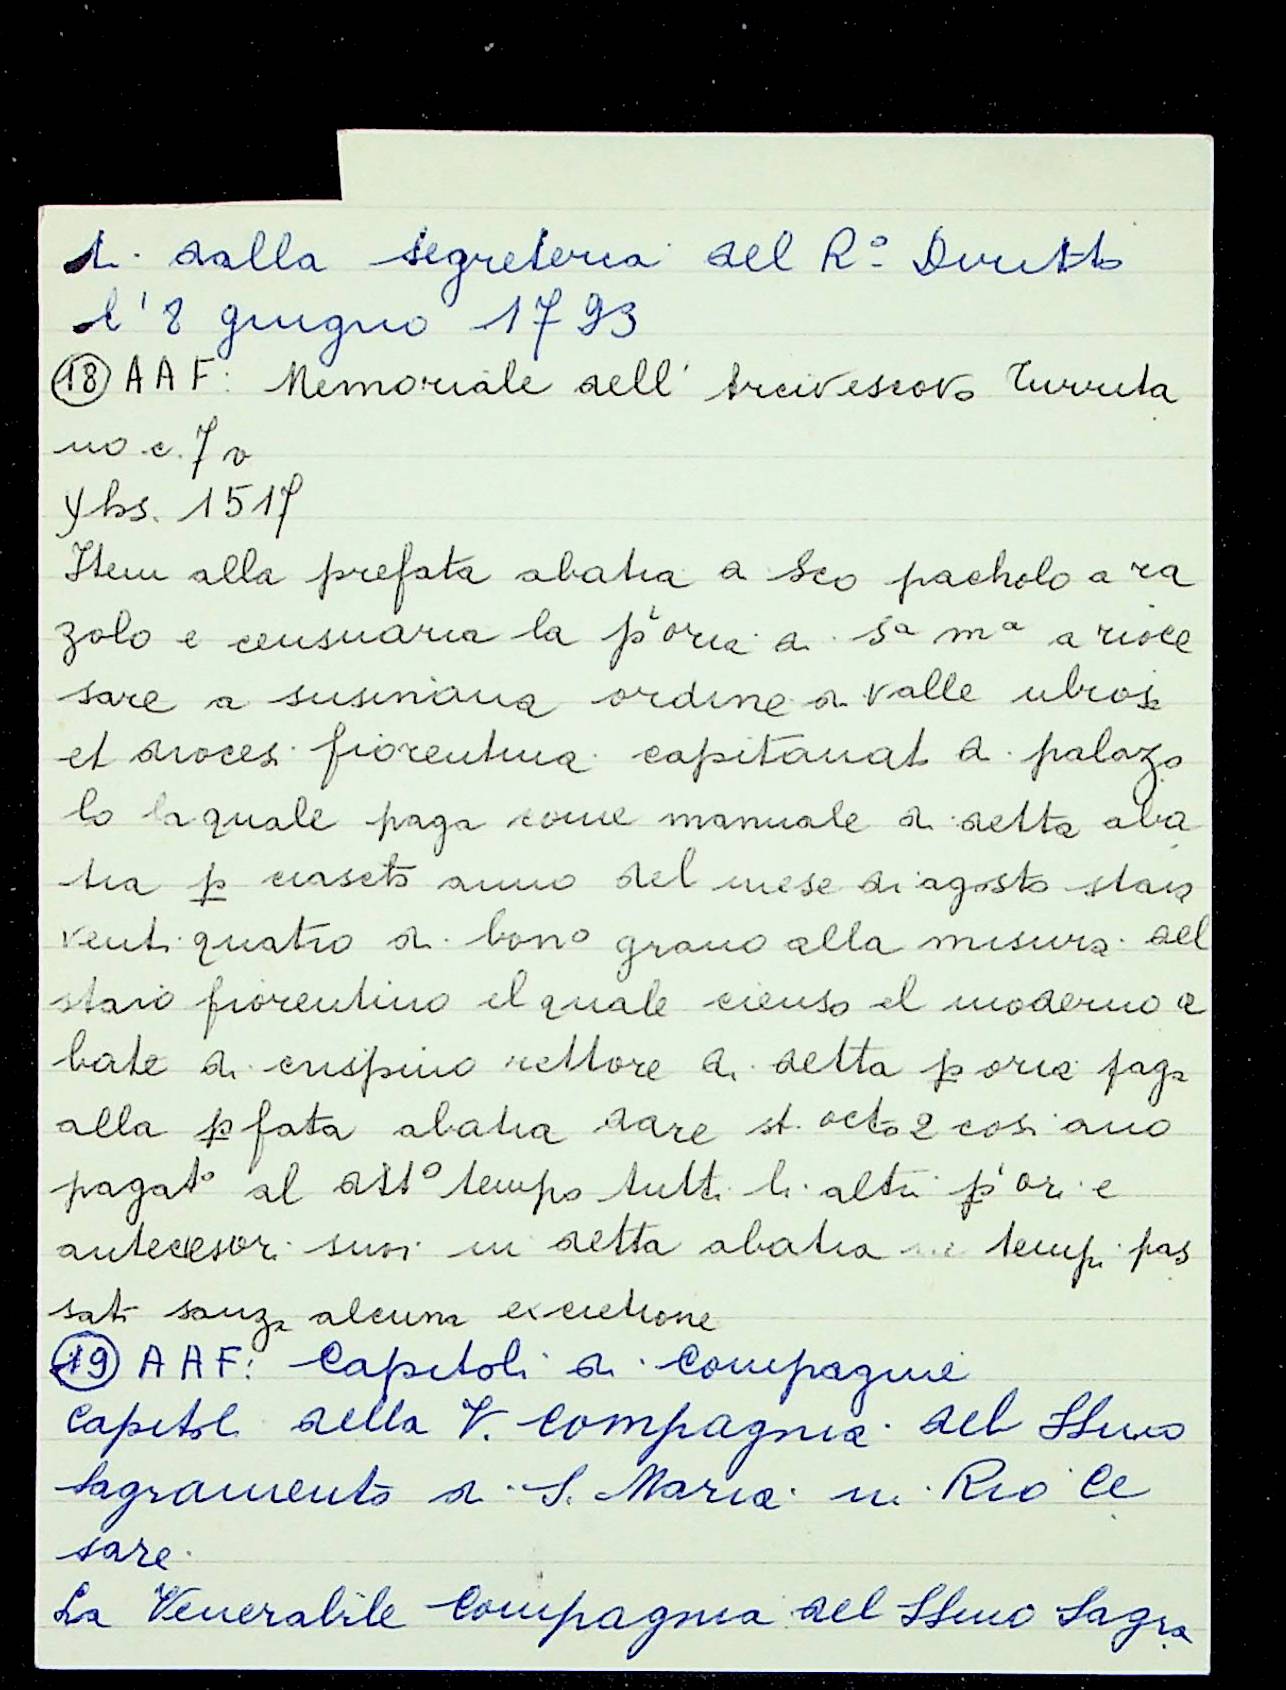 di dalla segreteria del R.º Diritto
l'8 giugno 1793
18 AAF: Memoriale dell' Arcivescovo Turrita
no c. 7 v
yhs. 1517
Item alla prefata abatia a Sco pacholo a ra
zolo e censuaria la p'oria di Sª mª a rioce
sare a susiniana ordine di valle ubrosi
et diocesi fiorentina capitanato di palazo
lo la quale paga come manuale di detta aba
tia p ciascto anno del mese di agosto staia
venti quatro di bono grano alla misura del
staio fiorentino el quale cienso el moderno a
bate di crispino rettore di detta p oria paga
alla p fata abatia dare st. octo 2 cosi ano
pagato al ditto tempo tutti li altri p'ori e
antecesori suoi in detta abatia ne tempi pas
sati sanza alcuna excietione
19 AAF: Capitoli di Compagnie
Capitoli della V. Compagnia del SSmo
Sagramento di S. Maria in Rio Ce
sare.
La Venerabile Compagnia del SSmo Sagra